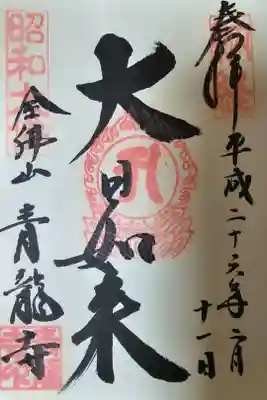 奉拝
平成二十六年二月
十一日
大日如来
昭和大佛
全佛山 青龍寺